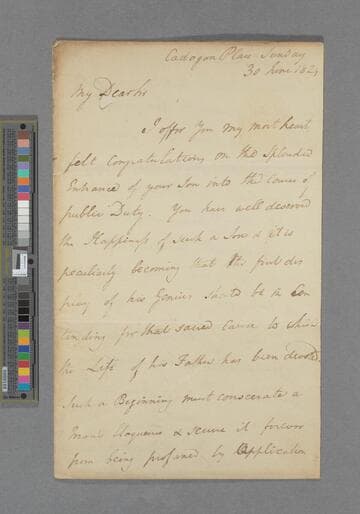 Cadogan Place Sunday
30 June 1824
My Dear Sir
I offer You my most heart
felt Congratulations on the Splendid
Entrance of your Son into the Course of
public Duty. You have well deserved
the Happiness of Such a Son & it is
peculiarly becoming that the first dis
play of his Genius should be a Con
tending for that sacred Cause to which
the Life of his Father has been devoted
Such a Beginning must consecrate a
Man's Eloquence & secure it forever
from being profaned by Application